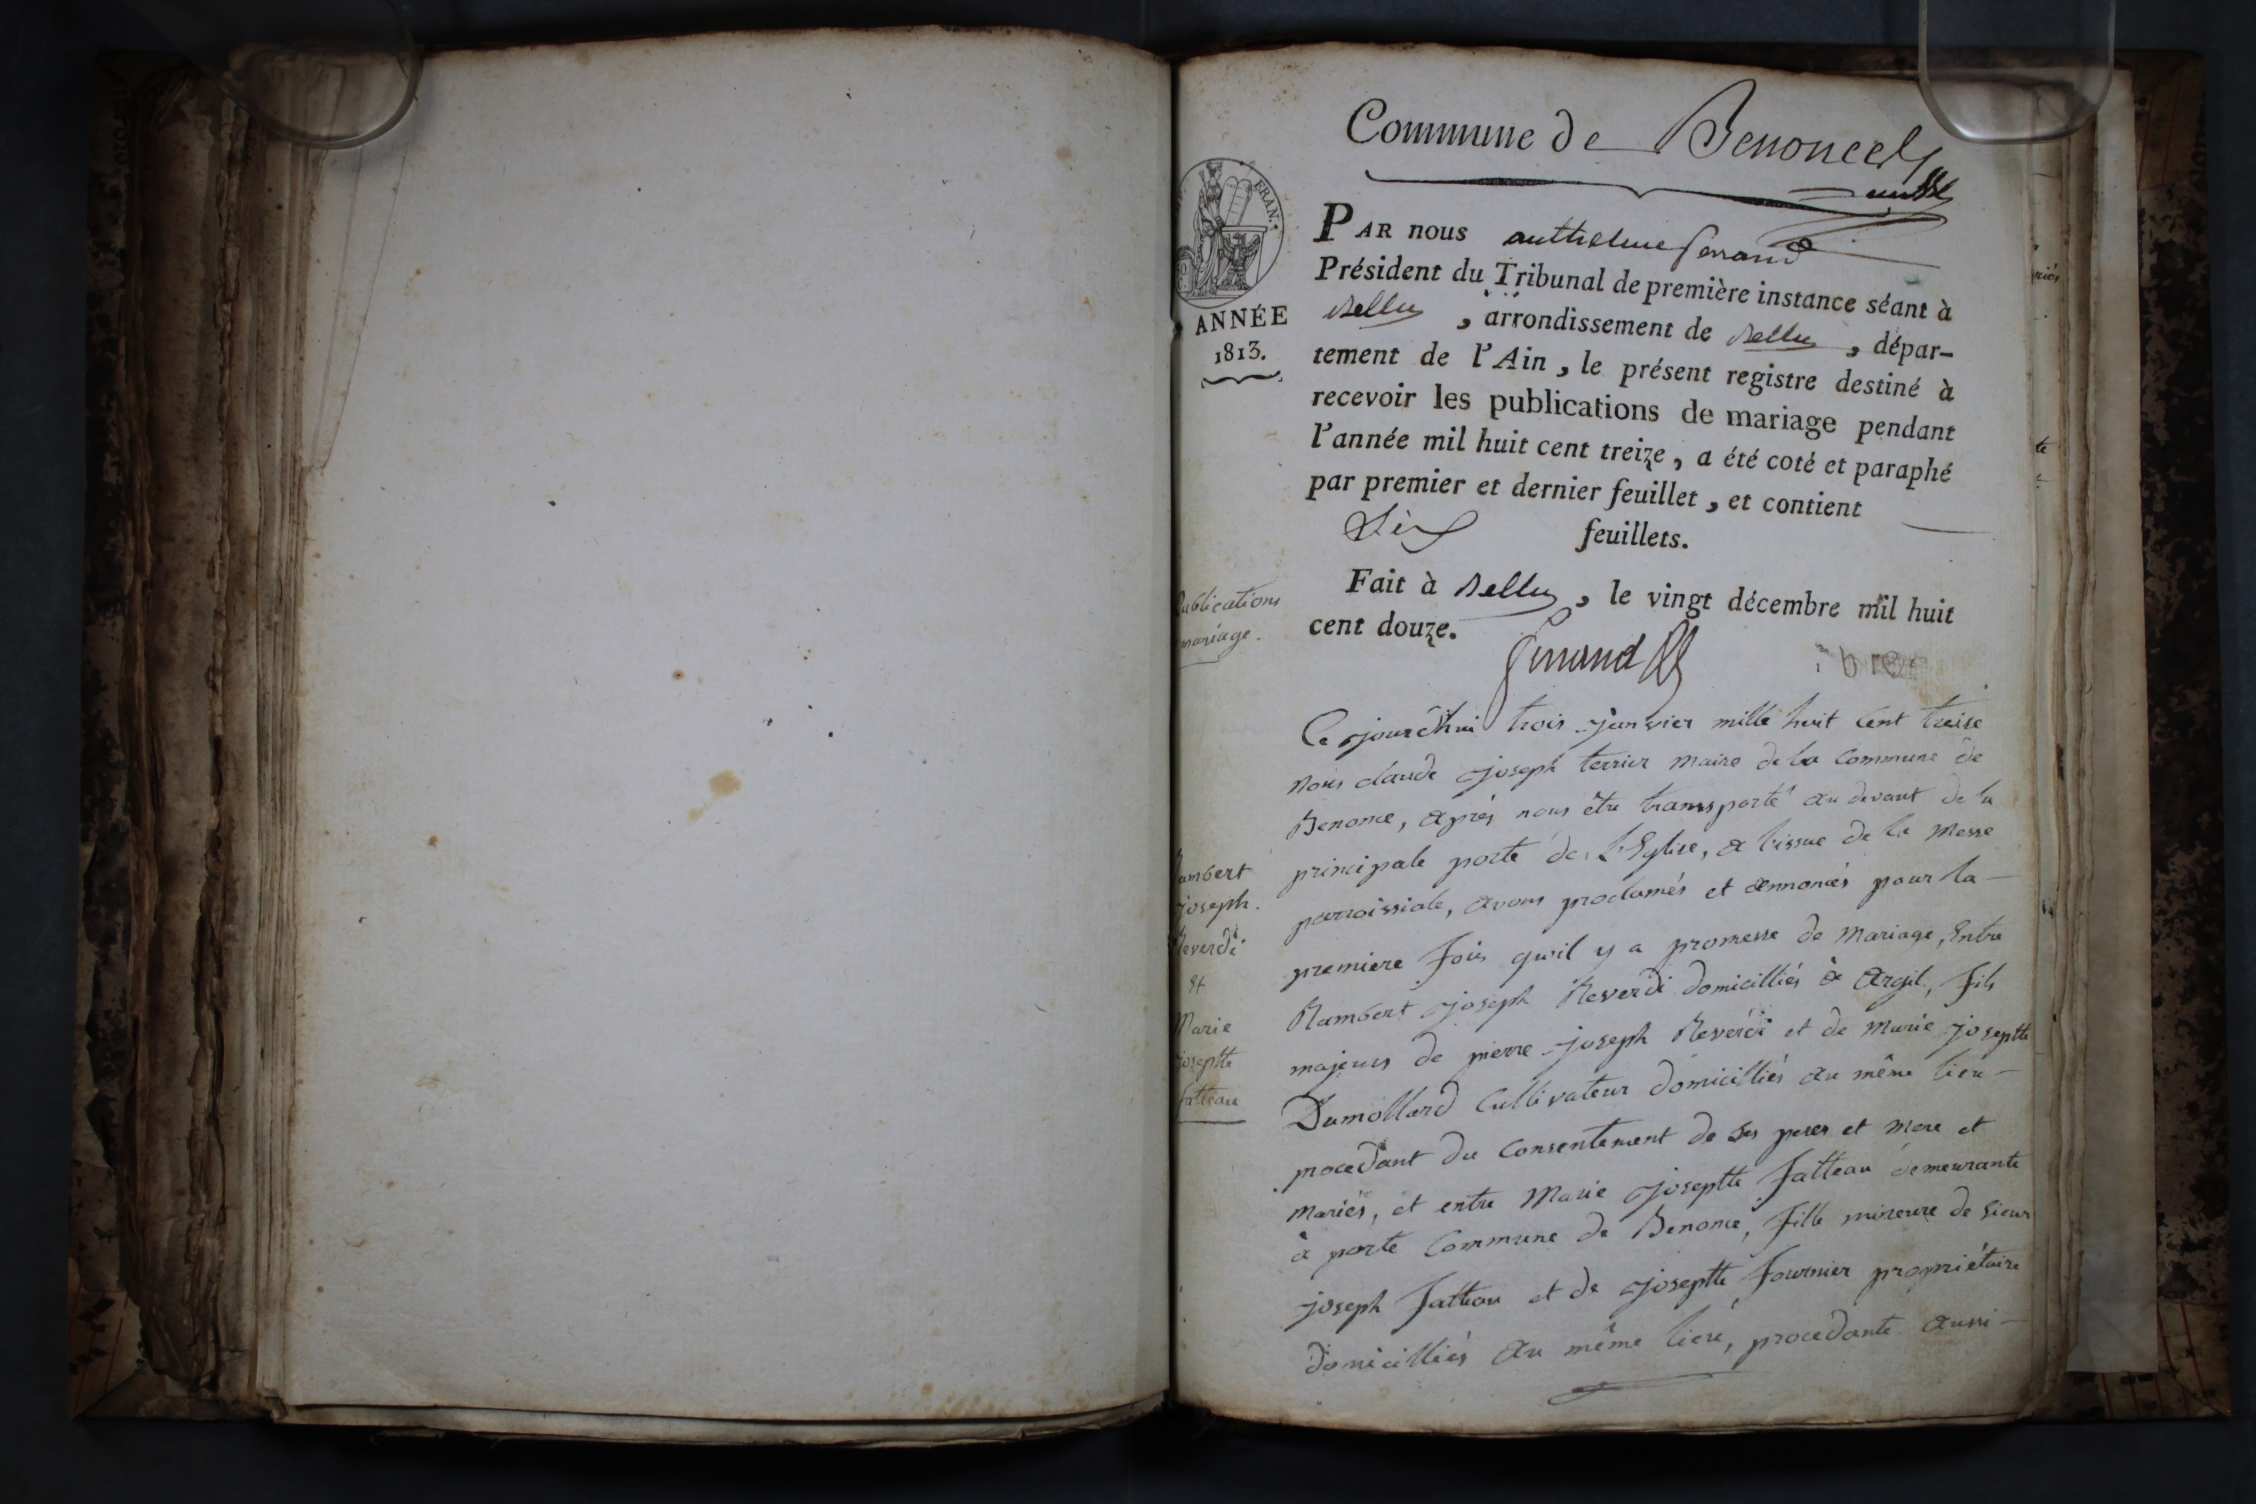 Commune de Benonce
FRAN.
ANNÉE
1813.
PAR nous anthelme Ferrand
Président du Tribunal de première instance séant à
Belley, arrondissement de Belley, dépar-
tement de l'Ain, le présent registre destiné à
recevoir les publications de mariage pendant
l'année mil huit cent treize, a été coté et paraphé
par premier et dernier feuillet, et contient
Six feuillets.
Fait à Belley, le vingt décembre mil huit
cent douze.
Publications
mariage.
Ce jourd'hui trois janvier mille huit Cent treise
nous claude joseph terrier maire de la Commune de
Benonce, après nous être transporté au devant de la
principale porte de l'Eglise, a l'issue de la Messe
parroissiale, avons proclamés et annoncés pour la
premiere fois qu'il y a promesse de mariage, Entre
Rambert joseph Reverdi domicilliés à Argil, fils
majeurs de pierre joseph Reverdi et de Marie josephte
Dumollard Cultivateur domicilliés au même lieu
procedant du Consentement de ses peres et mere et
mariés, et entre Marie josephte falteau demeurante
à porte Commune de Benonce, fille mineure de Sieur
joseph falteau et de josephte fournier propriétaire
domicilliés au même lieu, procedante aussi
Rambert
joseph.
Reverdi
Et
Marie
josephte
falteau